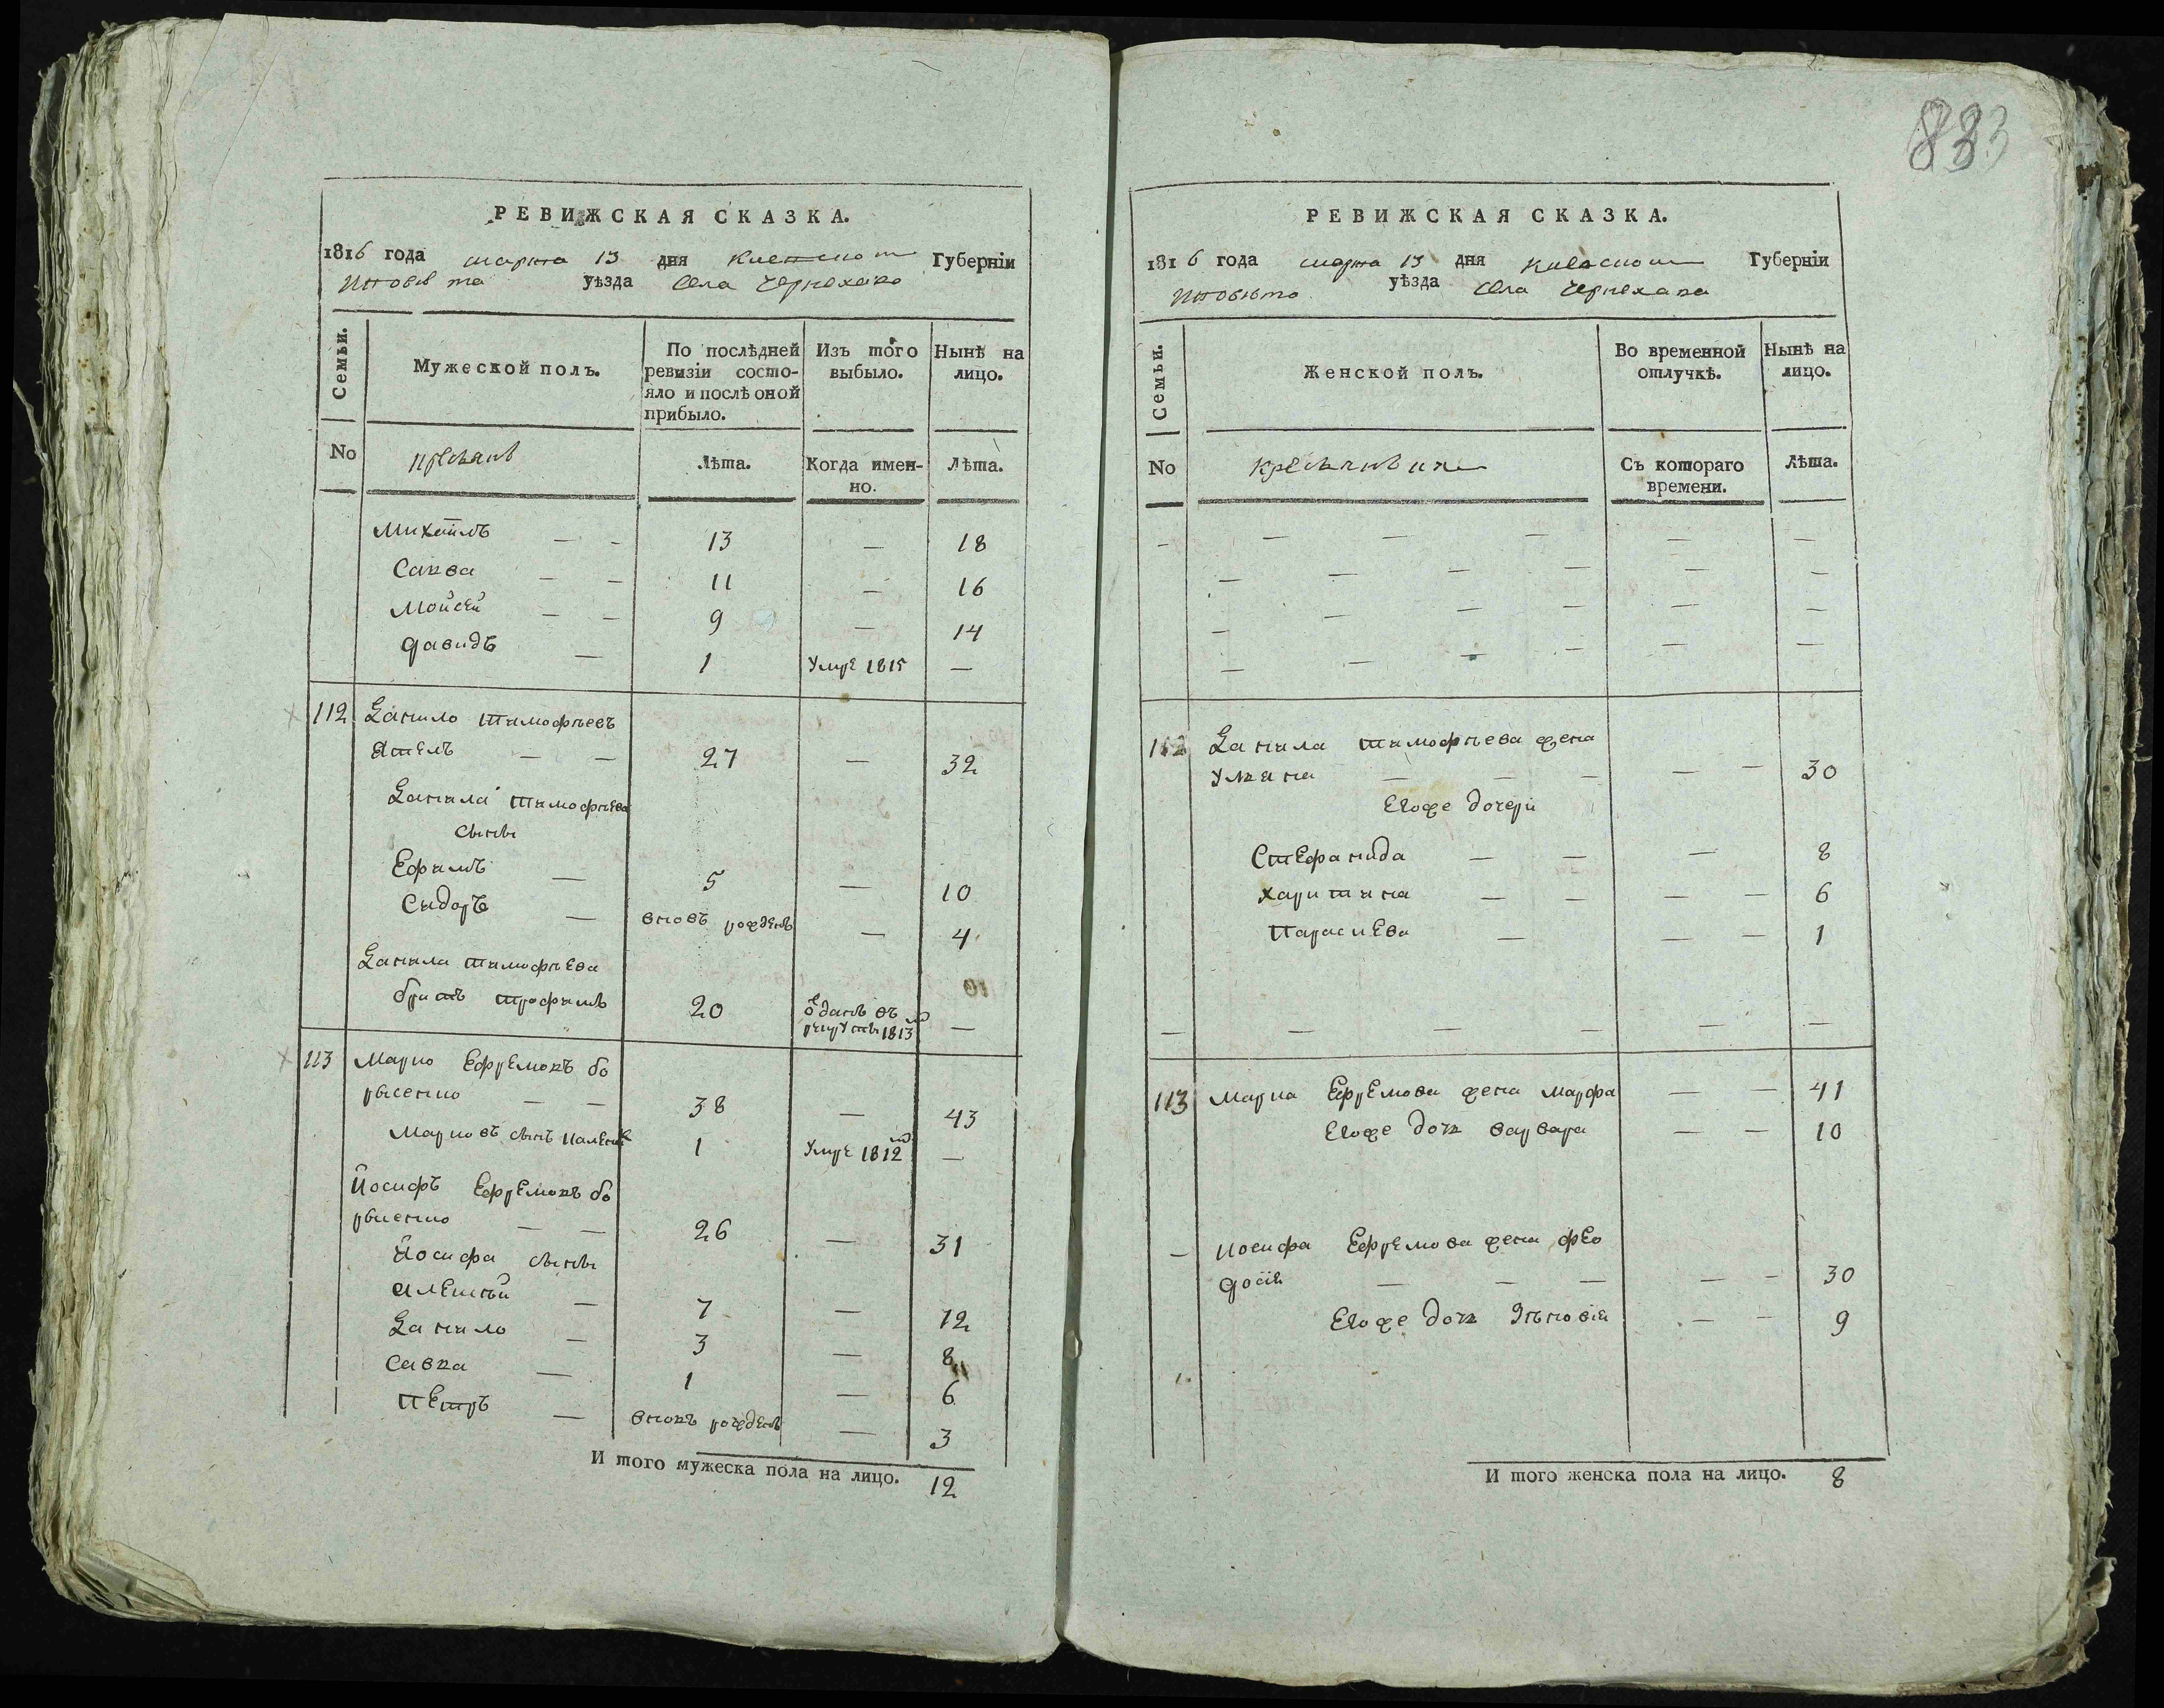 833
РЕВИЖСКАЯ СКАЗКА.
1816 года марта 13 дня Киевской Губерніи
уѣзда Села Черняхова
Семьи.
Мужеской полъ.
По послѣдней ревизіи состояло и послѣ оной прибыло.
Изъ того выбыло.
Нынѣ на лицо.
No
Лѣта.
Когда именно.
Лѣта.
Михаилъ — - 13 — 18
Савва — — 11 — 16
Мойсей — — 9 — 14
Давидъ — 1 Умре 1815 —
112 Данило Тимофѣевъ
27 — 32
Данила Тимофѣева
сыны
Ефимъ — 5 — 10
Сидоръ — вновь рожденъ — 4
Данила Тимофѣева
братъ Трофимъ 20 ѿданъ въ рекруты 1813 —
113 Марко Ефремовъ бо
рисенко — — 38 — 43
Марковъ сынъ 1 Умре 1812 —
Иосифъ Ефремовъ бо
рисенко — — 26 — 31
Иосифа сыны
Алексѣй — 7 — 12
Данило — 3 — 8
Савка — 1 — 6
Петръ — вновь рожденъ — 3
И того мужеска пола на лицо. 12
РЕВИЖСКАЯ СКАЗКА.
1816 года марта 13 дня Киевской Губерніи
уѣзда Села Черняхова
Семьи.
Женской полъ.
Во временной отлучкѣ.
Нынѣ на лицо.
No
Съ котораго времени.
Лѣта.
112 Данила Тимофѣева жена
Улияна — — — — — 30
Егоже дочери
Стефанида — — — 8
Харитина — — — — 6
Параскева — — — 1
113 Марка Ефремова жена Марфа — — 41
Егоже дочь Варвара — — 10
— Иосифа Ефремова жена Фео
досія — — — — - 30
Егоже дочь Зѣновія — — 9
И того женска пола на лицо. 8